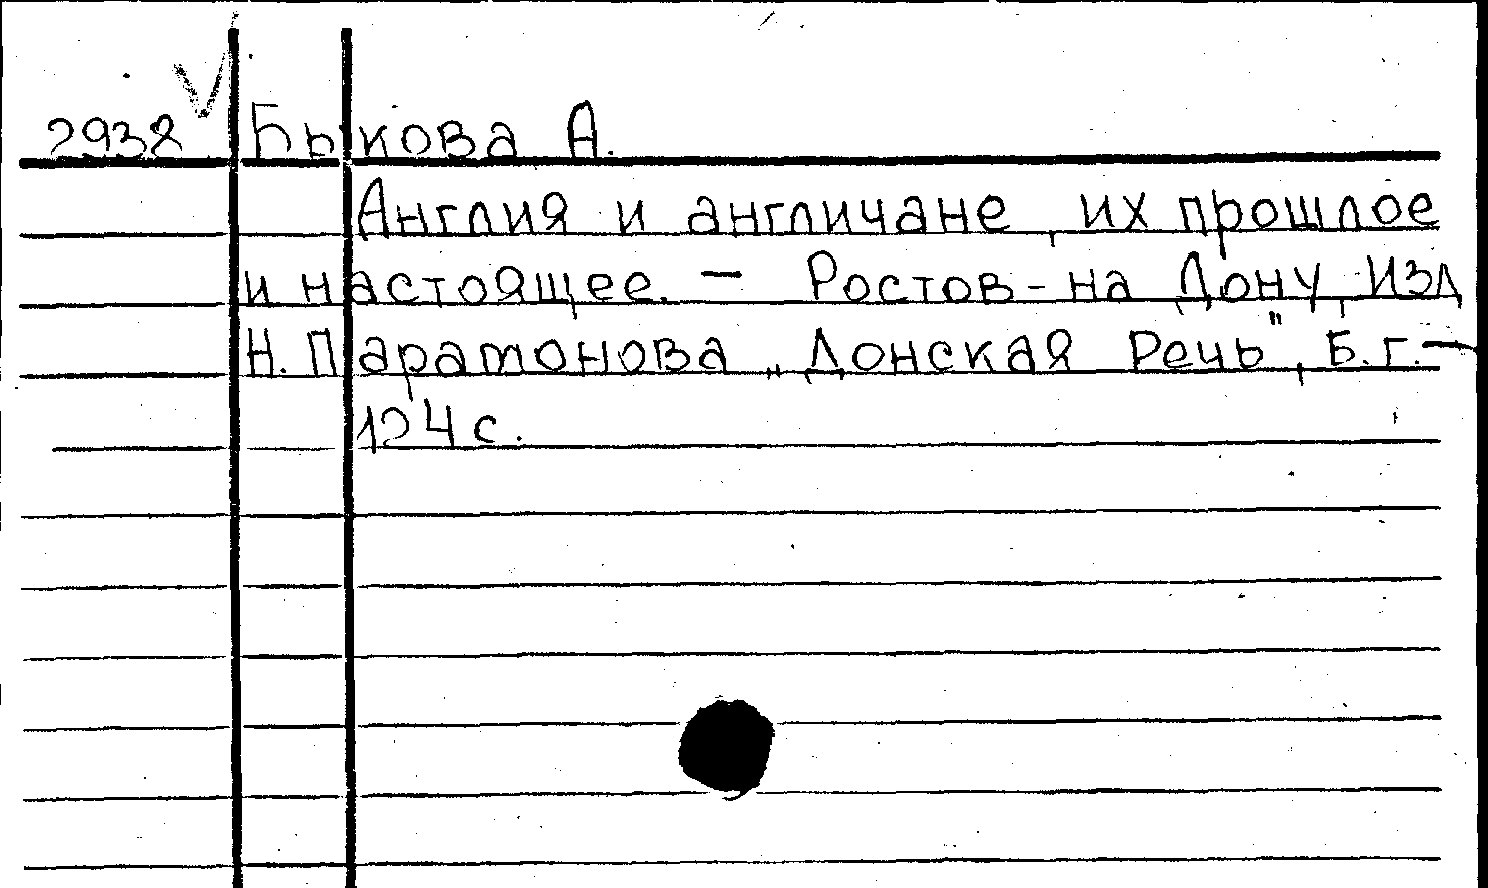 2938 Быкова А.
Англия и англичане, их прошлое
и настоящее. – Ростов-на Дону, Изд
Н. Парамонова „Донская Речь", Б.г. –
124 с.